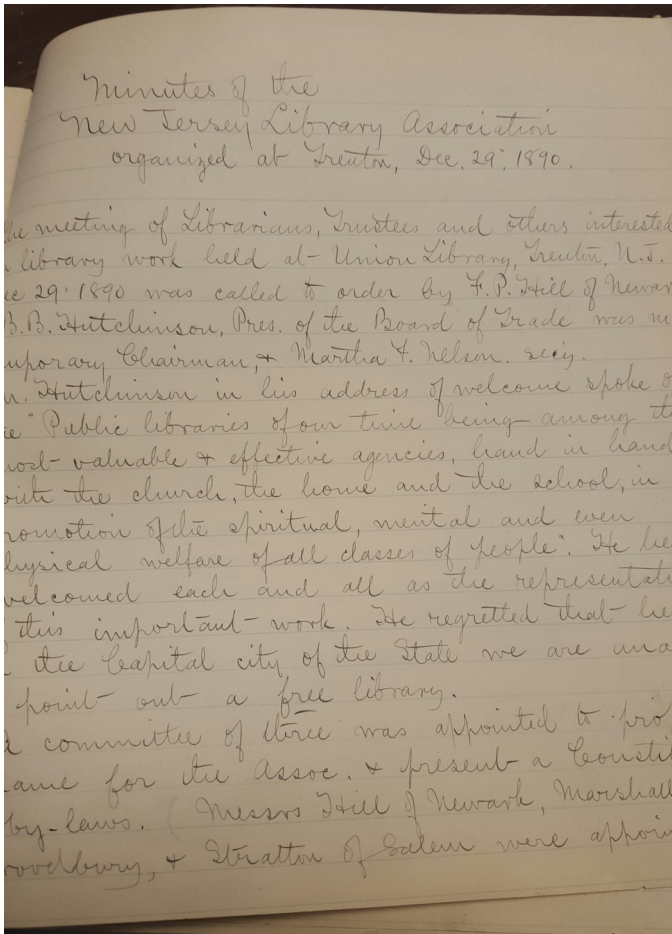 Minutes of the
New Jersey Library Association
organized at Trenton, Dec. 29, 1890.
he meeting of Librarians, Trustees and others interested
library work held at Union Library, Trenton, N.J.
ec 29, 1890 was called to order by F.P. Hill of Newar
B.B. Hutchinson, Pres. of the Board of Trade was m
mporary Chairman, & Martha F. Nelson. secy.
r. Hutchinson in his address of welcome spoke o
e "Public libraries of our time being among th
most valuable & effective agencies, hand in hand
with the church, the home and the school, in
romotion of the spiritual, mental and even
hysical welfare of all classes of people". He he
welcomed each and all as the representati
this important work. He regretted that he
the Capital city of the State we are una
point out a free library.
A committee of three was appointed to pro
ame for the Assoc. & present a Constit
by-laws. (Messrs Hill of Newark, Marshall
oodbury, & Stratton of Salem were appoin